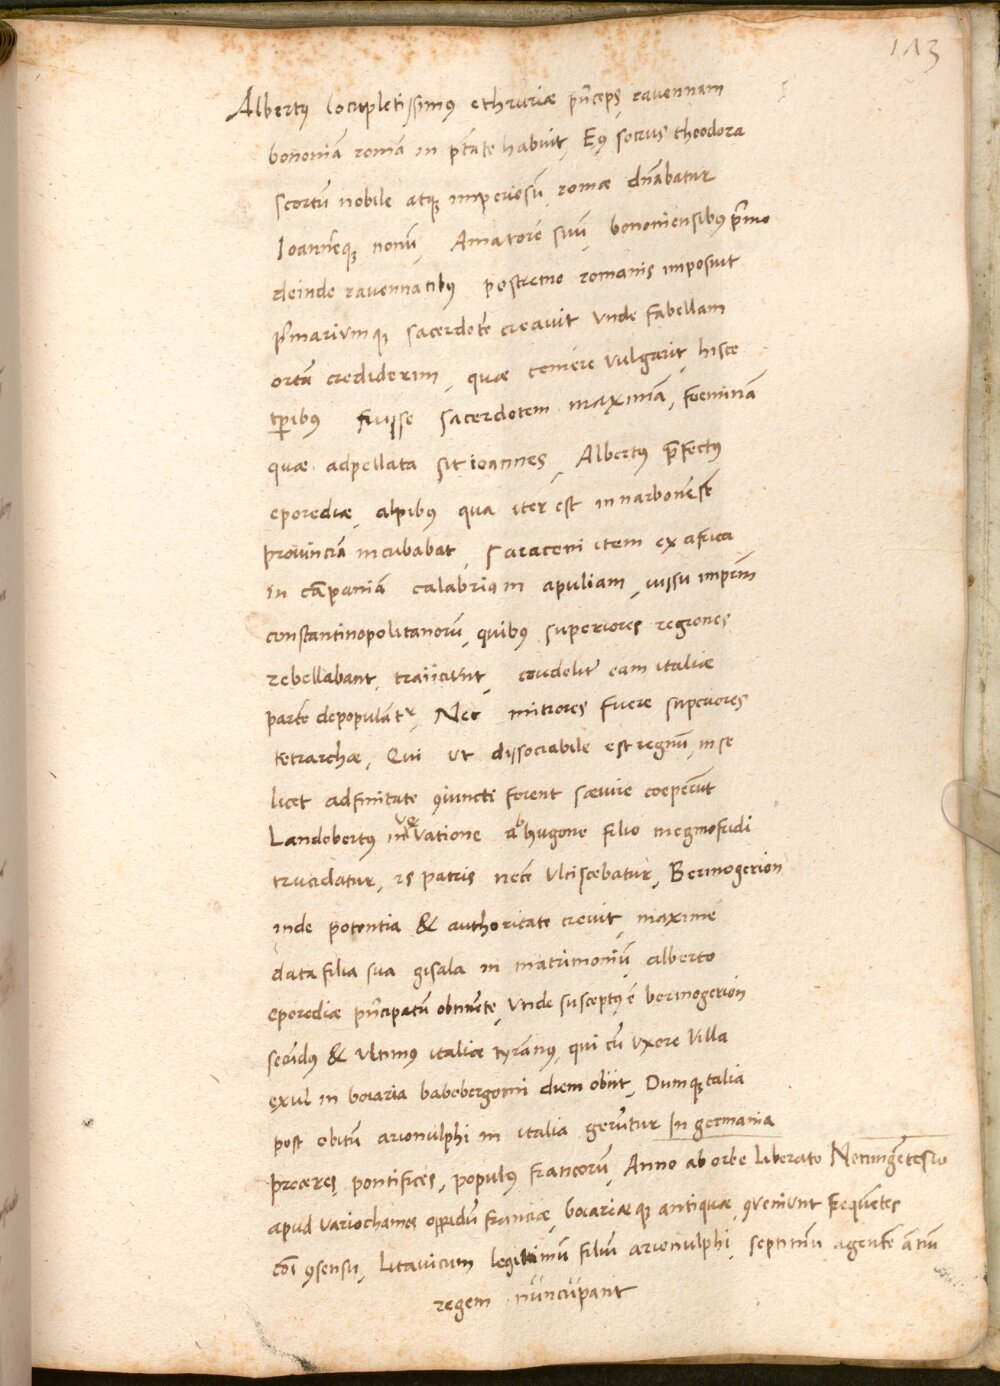 113
Albertꝰ locupletissimꝰ ethruriæ pn̄ceps ravennam
bononiā romā in ptāte habuit, Eꝰ socrus theodora
scortū nobile atqꝫ imperiosū romæ dn̄abatur
Ioannēqꝫ nonū, Amatorē suū, bononiensibus pͥmo
deinde ravennatibꝰ postremo romanis imposuit
pͥmariumqꝫ sacerdotē creavit Vnde fabellam
ortā crediderim, quæ temere vulgarit, hisce
tꝑibꝰ fuisse sacerdotem maximā, foeminā
quæ adpellata sit ioannes, Albertꝰ p̄fectꝰ
eporediæ, alpibꝰ qua iter est in narbonēsē
provinciā incubabat, Saraceni item ex africa
in cāpaniā calabriam apuliam, iussu imprm̄
constantinopolitanorū, quibꝰ superiores regiones
rebellabant, traiiciunt, crudelit᷑ eam italiæ
partē depopulātͬ, Nec mitiores fuere superiores
tetrarchæ, Qui ut dissociabile est regnū, in se
licet adfinitate ꝯiuncti forent sævire coeperūt
Landobertꝰ in venatione ab hugone filio megmofridi
trucidatur, is patris necē ulciscebatur, Bermogerion
inde potentia & authoritate crevit, maxime
data filia sua gisala in matrimoniū alberto
eporediæ pn̄cipatū obtinēte, Vnde susceptꝰ ē bermogerion
secūdꝰ & ultimꝰ italiæ tyrānꝰ, qui cū uxore Villa
exul in boiaria babebergomi diem obiit, Dumqꝫ talia
post obitū arionulphi in italia gerūtur In germania
proceres, pontifices, populꝰ francorū, Anno ab orbe Liberato Noningētesio
apud Variochamos oppidū franciæ, boiariæqꝫ antiquæ, ꝯveniunt freqūetes
cōi ꝯsensu, Litavicum legitimū filiū arionulphi, septimū agentē ānū
regem nuncupant